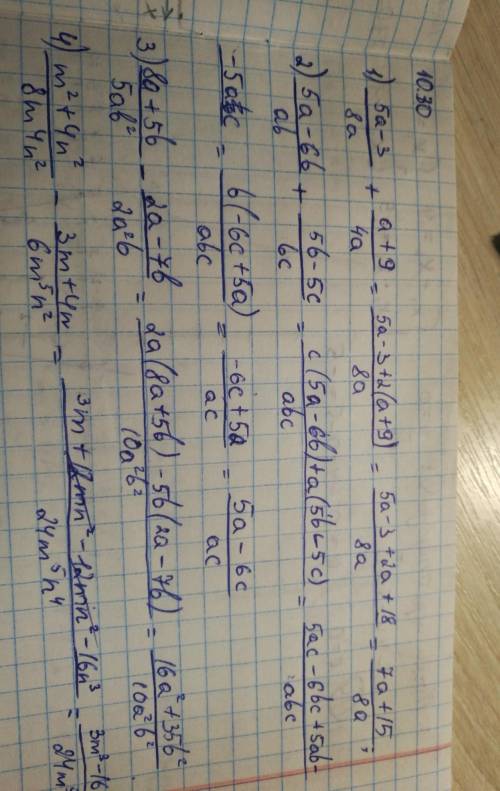 10.30
1) (5a-3)/(8a) + (a+9)/(4a) = (5a-3+2(a+9))/(8a) = (5a-3+2a+18)/(8a) = (7a+15)/(8a);
2) (5a-6b)/(ab) + (5b-5c)/(bc) = (c(5a-6b)+a(5b-5c))/(abc) = (5ac-6bc+5ab-)/(abc)
(-5ac)/() = (b(-6c+5a))/(abc) = (-6c+5a)/(ac) = (5a-6c)/(ac)
3) (8a+5b)/(5ab²) - (2a-7b)/(2a²b) = (2a(8a+5b)-5b(2a-7b))/(10a²b²) = (16a²+35b²)/(10a²b²)
4) (m²+4n²)/(8m4n²) - (3m+4n)/(6m⁵n²) = (3m+12mn²-12mn²-16n³)/(24m⁵n⁴) = (3m³-16)/(24m⁵)